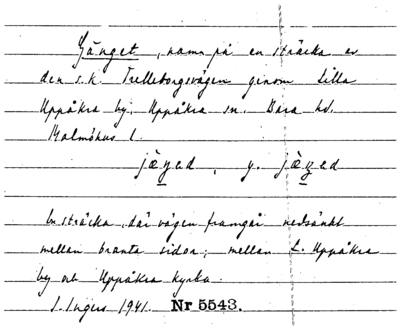 Gänget, namn på en sträcka av
den s.k. Trelleborgsvägen genom Lilla
Uppåkra by, Uppåkra sn. Bara hd.
Malmöhus l.
jäŋed, y. jäŋed
En sträcka, där vägen framgår nedsänkt
mellan branta sidor; mellan L. Uppåkra
by och Uppåkra kyrka.
I. Ingers 1941. Nr 5543.